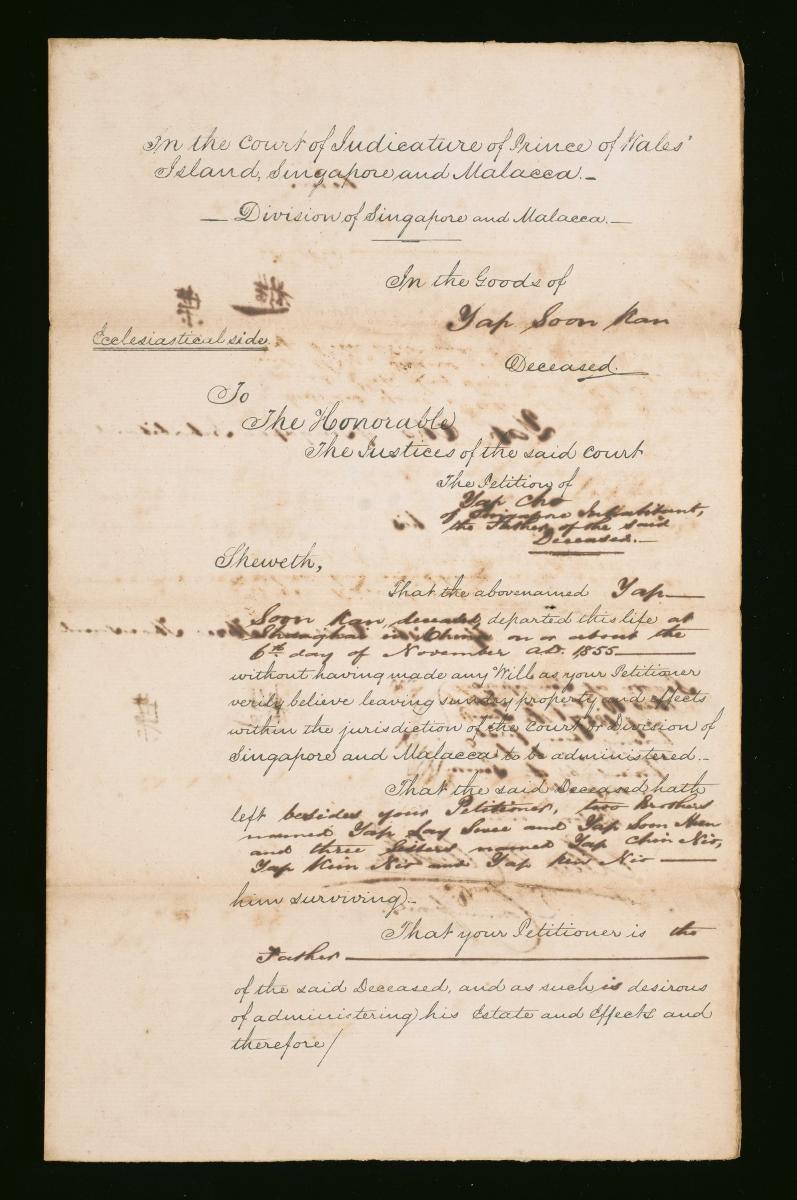 In the Court of Judicature of Prince of Wales'
Island, Singapore and Malacca.
Division of Singapore and Malacca.
In the Goods of
Yap Soon Kan
Ecclesiastical side
Deceased.
To
The Honorable
The Justices of the said Court
The Petition of
Yap Cho
of Singapore Inhabitant,
the Father of the said
Deceased.
Sheweth,
That the abovenamed Yap
Soon Kan, deceased, departed this life at
Shanghai in China on or about the
6th day of November A.D. 1855
without having made any Will as your Petitioner
verily believe leaving sundry property and effects
within the jurisdiction of the Court or Division of
Singapore and Malacca to be administered.
That the said Deceased hath
left besides your Petitioner, two Brothers
named Yap Lay Swee and Yap Soon
and three Sisters named Yap Chin Nio,
Yap Kim Nio and Yap Nio
him surviving.
That your Petitioner is the
Father
of the said Deceased, and as such is desirous
of administering his Estate and Effects and
therefore/